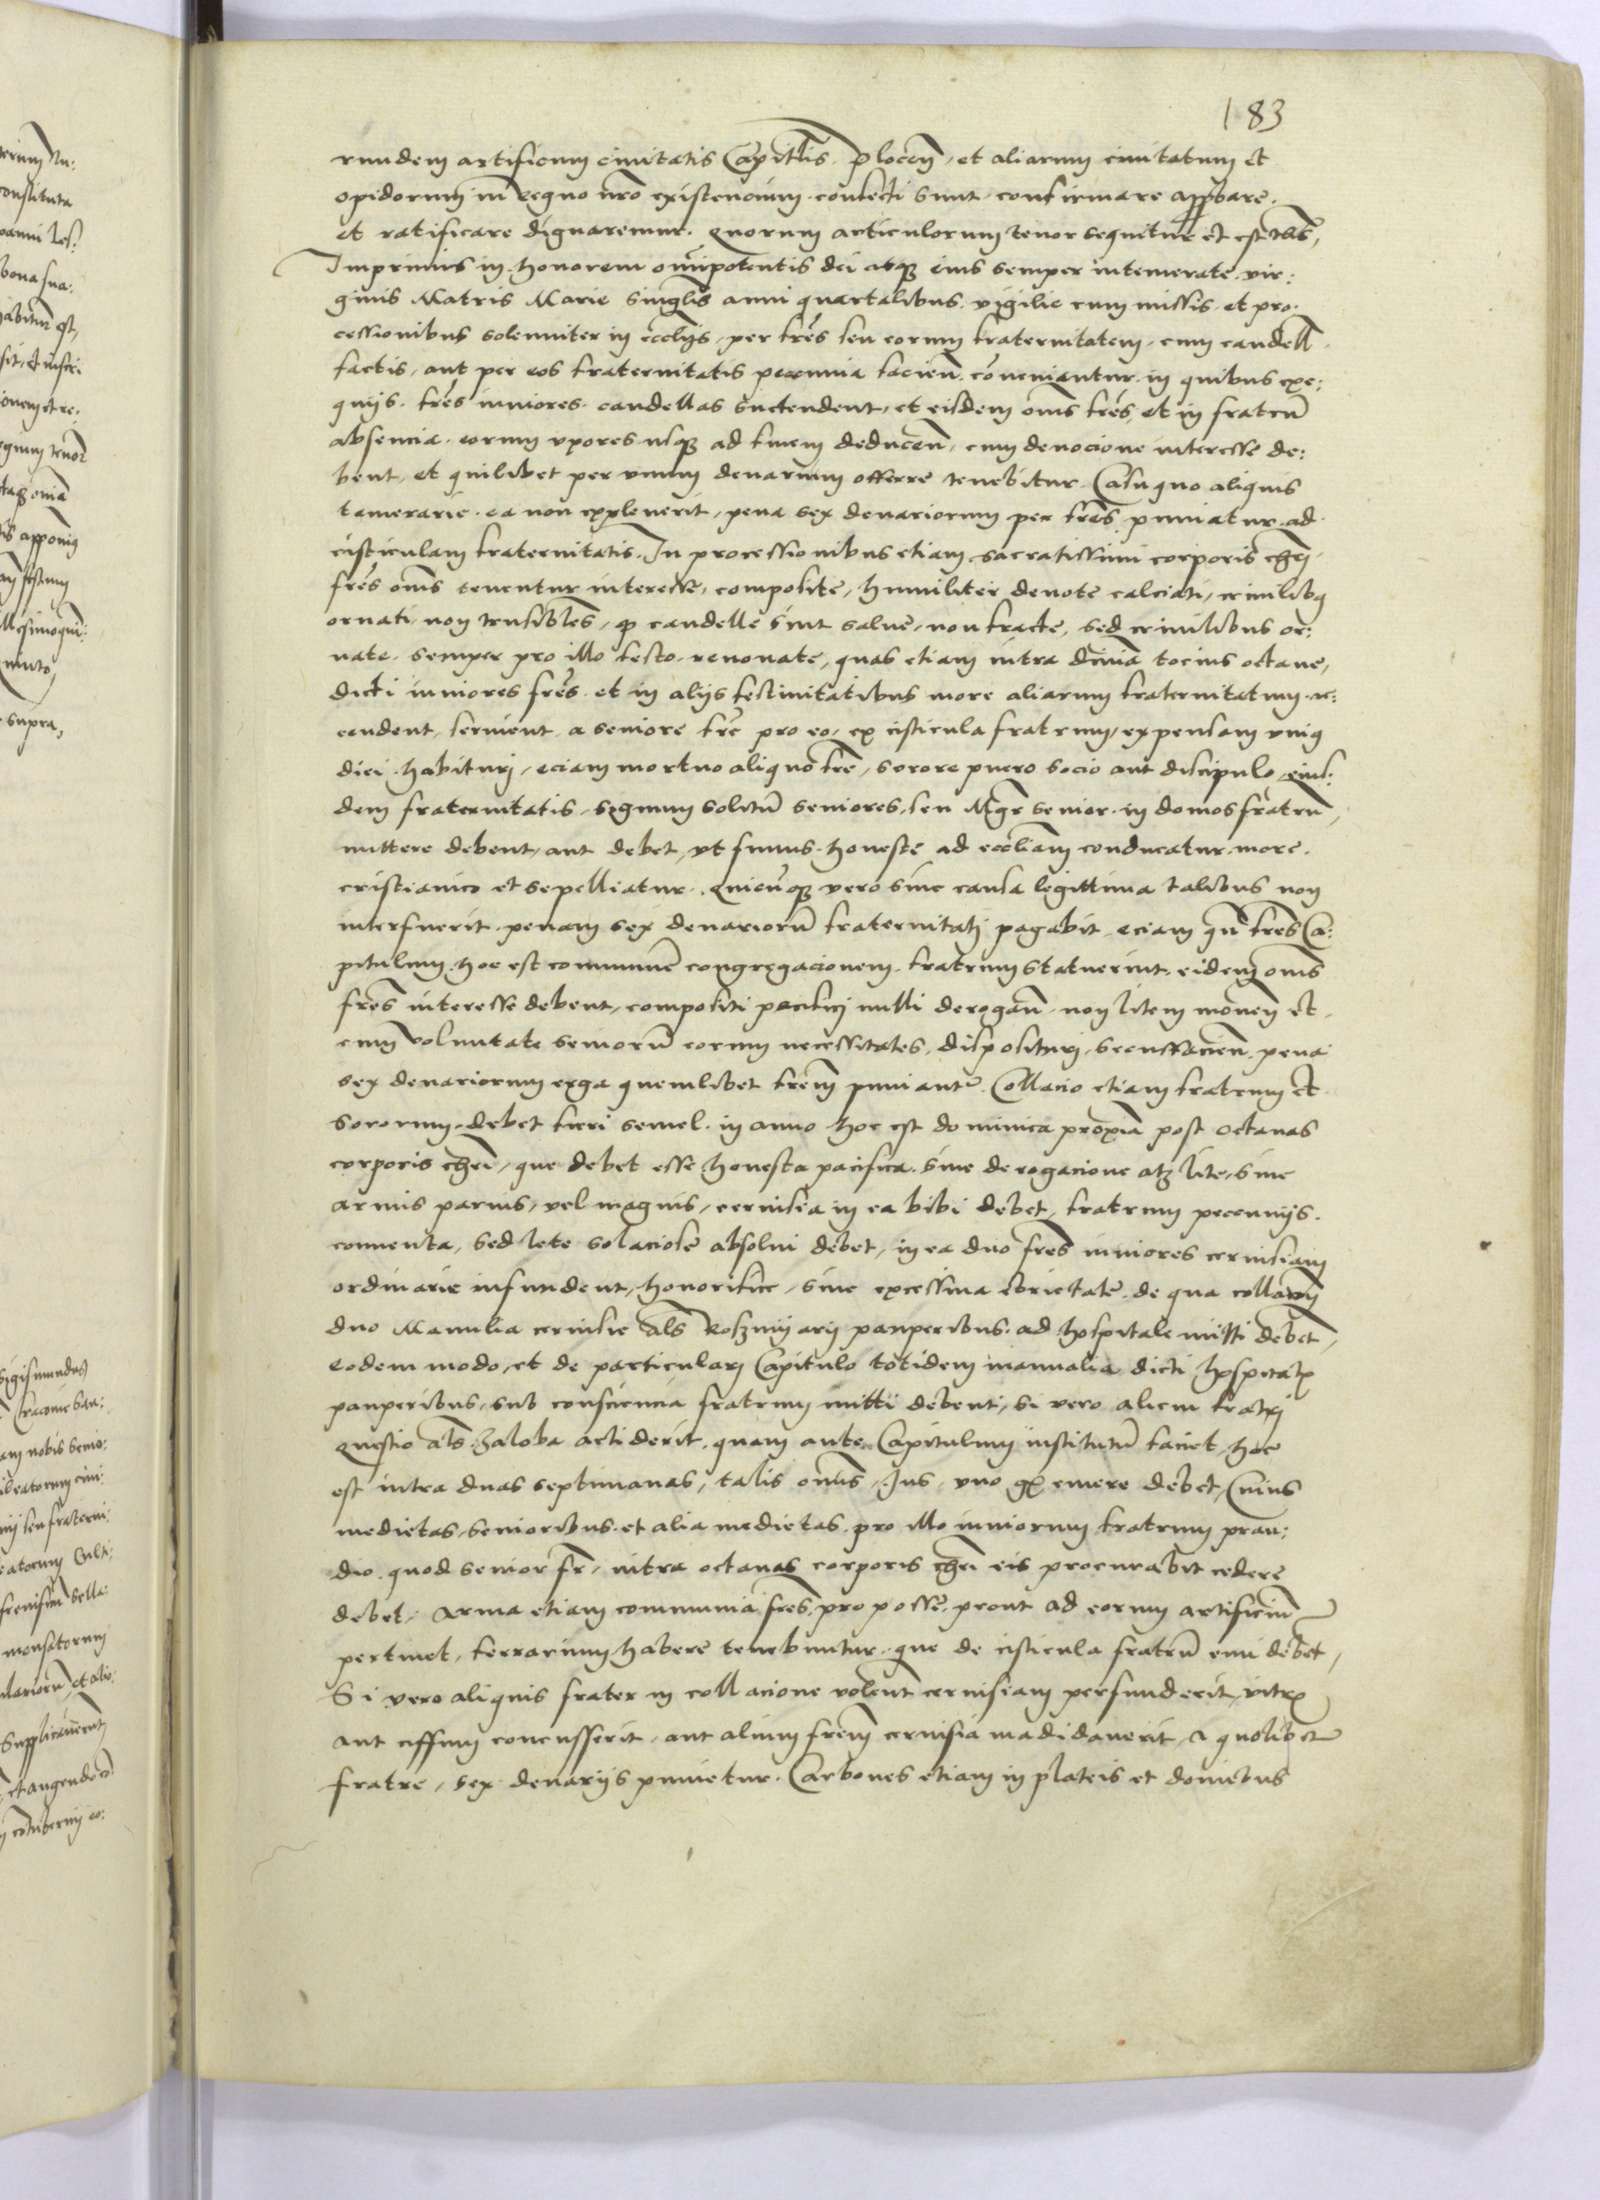 183
rundem artificum civitatis Capitlis plocen, et aliarum civitatum et
opidorum in regno nro existencium confecti sunt, confirmare appbare
et ratificare dignaremur. Quorum articulorum tenor sequitur et est tlis,
Imprimis in honorem omipotentis dei atq eius semper intemerate vir:
ginis Matris Marie singlis anni quartalibus vigilie cum missis et pro:
cessionibus solenniter in ecclijs, per frēs seu eorum fraternitatem, cum candell
factis, aut per eos fraternitatis pecunia facien conveniantur in quibus exe:
quijs frēs iuniores candellas suctendent, et eisdem oms frēs, et in fratrū
absencia eorum uxores usq ad finem deducen, cum devocione interesse de:
bent, et quilibet per unum denarium offerre tenebitur. Casu quo aliquis
tamerarie ea non explenerit, pena sex denariorum per frēs puniatur ad
cisticulam fraternitatis. In processionibus etiam sacratissimi corporis chri
frēs oms tenentur interesse, composite, humiliter devote calciati, crinilibq
ornati, non trusibles, q candelle sint salve, non fracte, sed crinilibus or:
nate semper pro illo festo renovate, quas etiam intra tocius octave,
dicti iuniores frēs et in alijs festivitatibus more aliarum fraternitatum ac:
cendent, servient a seniore frē pro eo, ex cisticula fratrum, expensam unig
diei habituri, eciam mortuo aliquo frē, sorore puero socio aut discipulo eius:
dem fraternitatis, segnum solitū seniores, seu Mgr senior in domos fratrū,
mittere debent, aut debet, ut funus honeste ad eccliam conducatur more
cristianico et sepelliatur. Quicuq vero sine causa legittima talibus non
interfuerit penam sex denariorū fraternitati pagabit, eciam qn frēs Ca:
pitulum, hoc est communē congregacionem fratrum statuerint, eidem oms
frēs interesse debent, compositi pacifici nulli derogan, non litem moven et
cum voluntate seniorū eorum necessitates, disposituri, secusfacien, pena
sex denariorum erga quemlibet frem puniantr. Collacio etiam fratrum et
sororum, debet fieri semel in anno hoc est dominica proxia post octavas
corporis chri, que debet esse honesta pacifica sine derogacione atz lite, sine
armis parvis, vel magnis, cervisia in ea bibi debet, fratrum pecunijs
conventa, sed lete solaciose absolvi debet, in ea duo frēs iuniores cervisiam
ordinarie infundent, honorifice, sine excessiva ebrietate, de qua collacon
duo Manulia cervisie als pauperibus ad hospitale mitti debet,
Eodem modo, et de particulari Capitulo totidem manualia dicti hospitalis
pauperibus, sub consciencia fratrum mitti debent, Si vero alicui fratri
questio als zaloba actiderit, quam ante Capitulum institutū faciet, hoc
est intra duas septimanas, talis omis, Ius, uno gr emere debet, Cuius
medietas senioribus et alia medietas pro illo iuniorum fratrum pran:
dio quod senior fr, intra octavas corporis chri eis procurabit cedere
debet, Arma etiam communia frēs, pro posse, prout ad eorum artificiū
pertinet, ferrarium habere tenebuntur, que de cisticula fratrū emi debet,
Si vero aliquis frater in collacione volens cervisiam perfunderit, vitrū
aut ciffum concusserit, aut alium frēm cervisia madidaverit, a quolibet
fratre, sex denarijs punietur. Carbones etiam in plateis et domibus